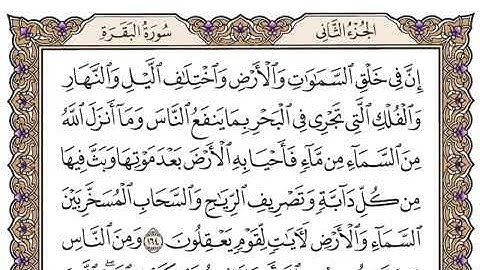 الجُزْءُ الثَّانِي سُورَةُ البَقَرَةِ
إِنَّ فِي خَلْقِ ٱلسَّمَٰوَٰتِ وَٱلْأَرْضِ وَٱخْتِلَٰفِ ٱلَّيْلِ وَٱلنَّهَارِ
وَٱلْفُلْكِ ٱلَّتِي تَجْرِي فِي ٱلْبَحْرِ بِمَا يَنفَعُ ٱلنَّاسَ وَمَآ أَنزَلَ ٱللَّهُ
مِنَ ٱلسَّمَآءِ مِن مَّآءٍ فَأَحْيَا بِهِ ٱلْأَرْضَ بَعْدَ مَوْتِهَا وَبَثَّ فِيهَا
مِن كُلِّ دَآبَّةٍ وَتَصْرِيفِ ٱلرِّيَٰحِ وَٱلسَّحَابِ ٱلْمُسَخَّرِ بَيْنَ
ٱلسَّمَآءِ وَٱلْأَرْضِ لَأٓيَٰتٍ لِّقَوْمٍ يَعْقِلُونَ ١٦٤ وَمِنَ ٱلنَّاسِ